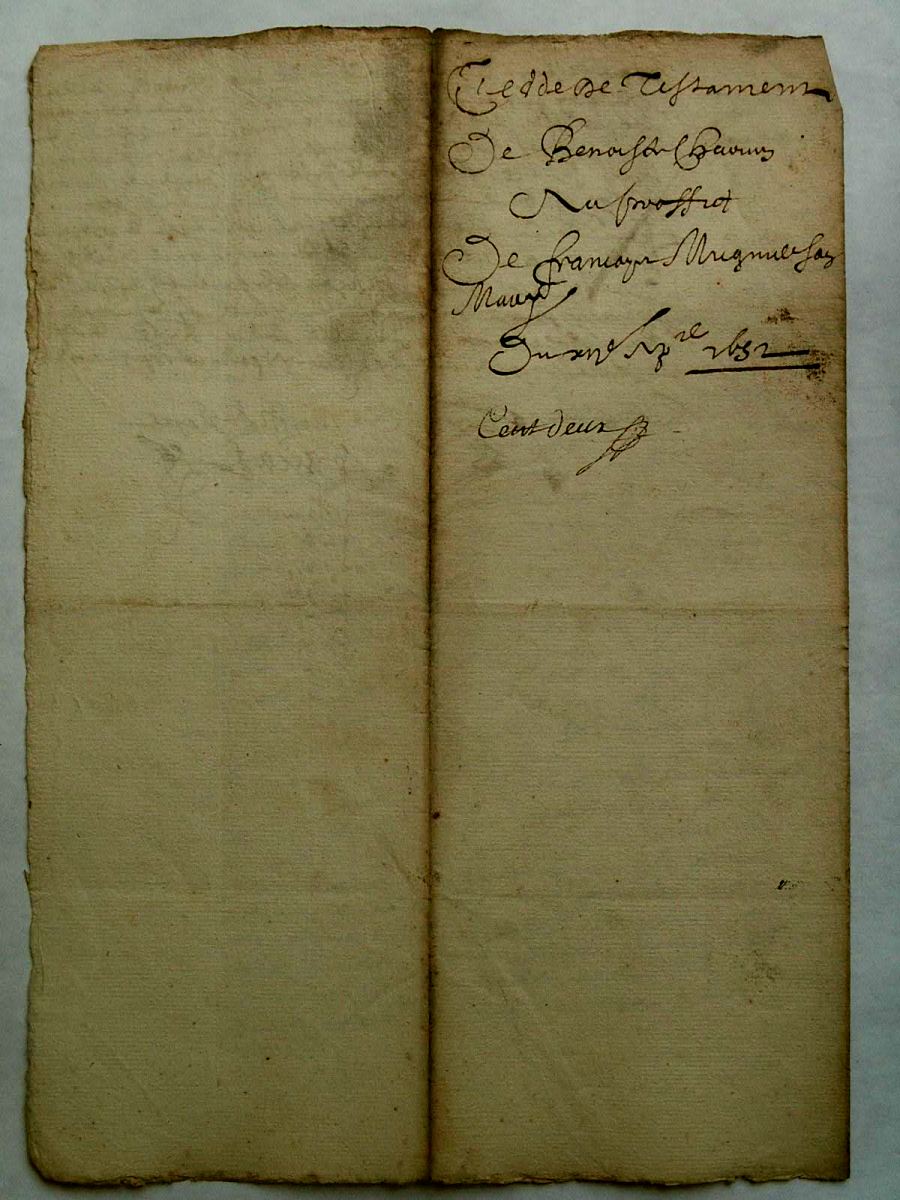 Tedde De Testament
De Benoiste Chavin
Au proffict
De francoyse Mugnier son
Mary
Du xvje Apre 1652
Cent deux